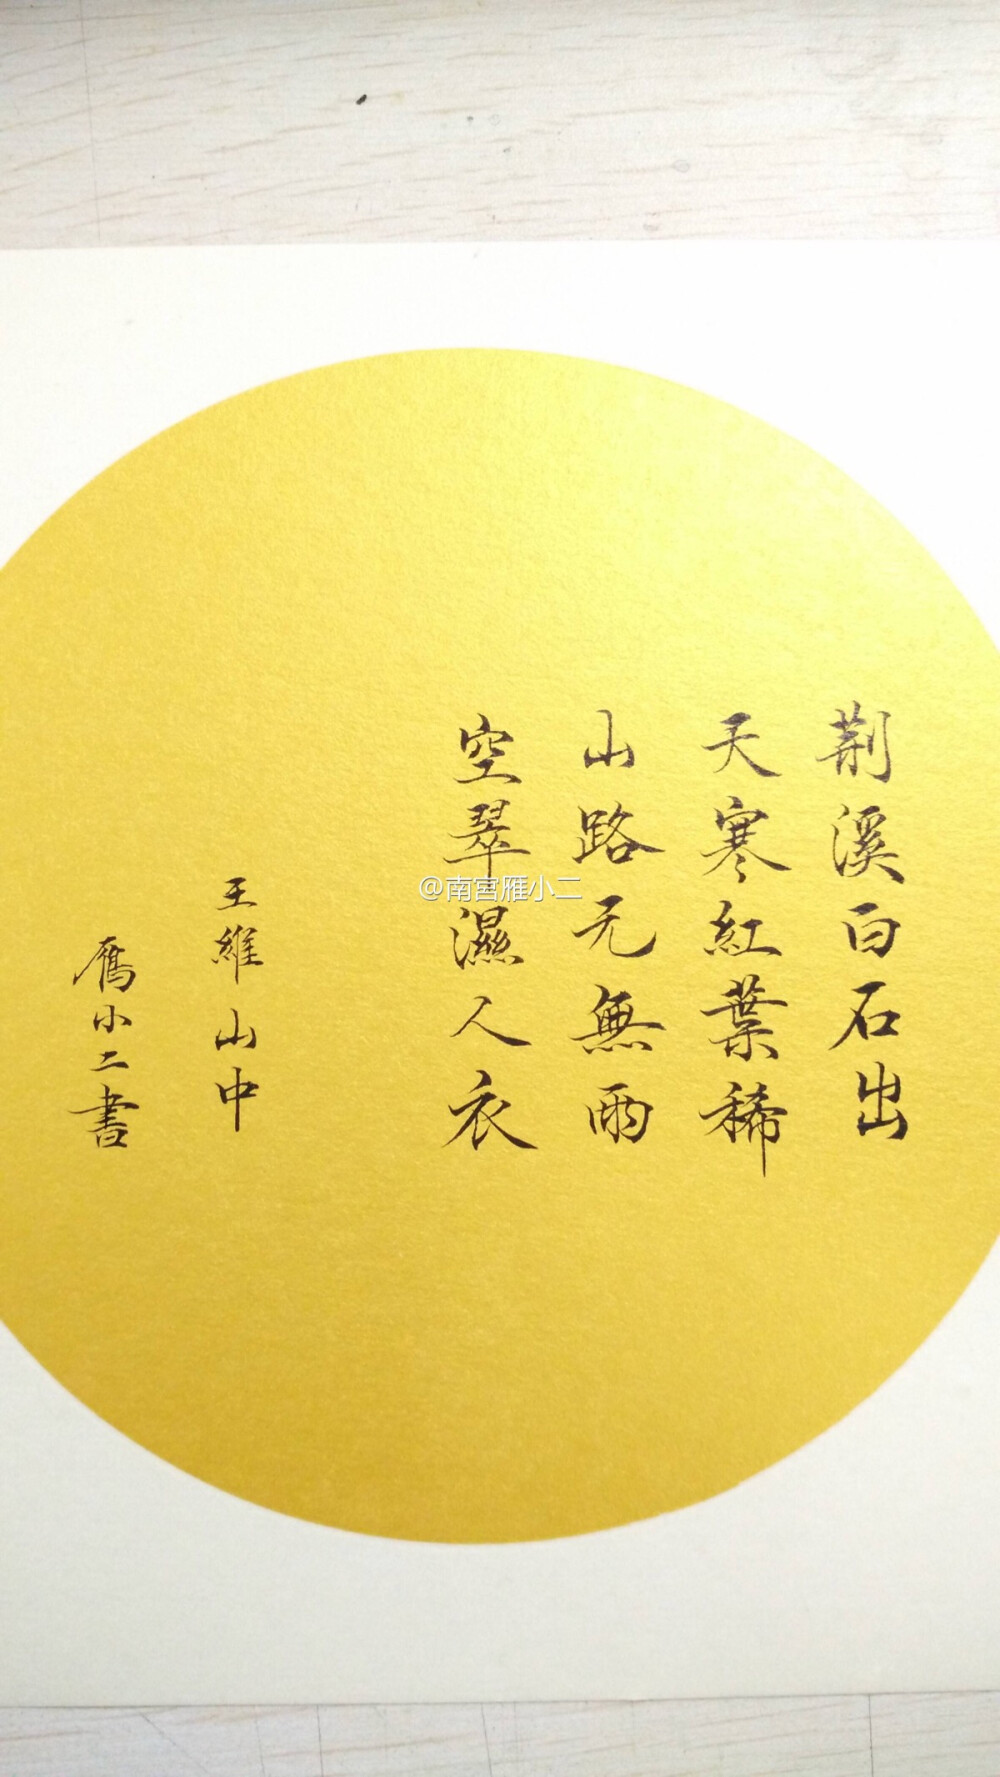 荆溪白石出
天寒紅葉稀
山路无無雨
空翠濕人衣
王維山中
雁小二書
@南宫雁小二